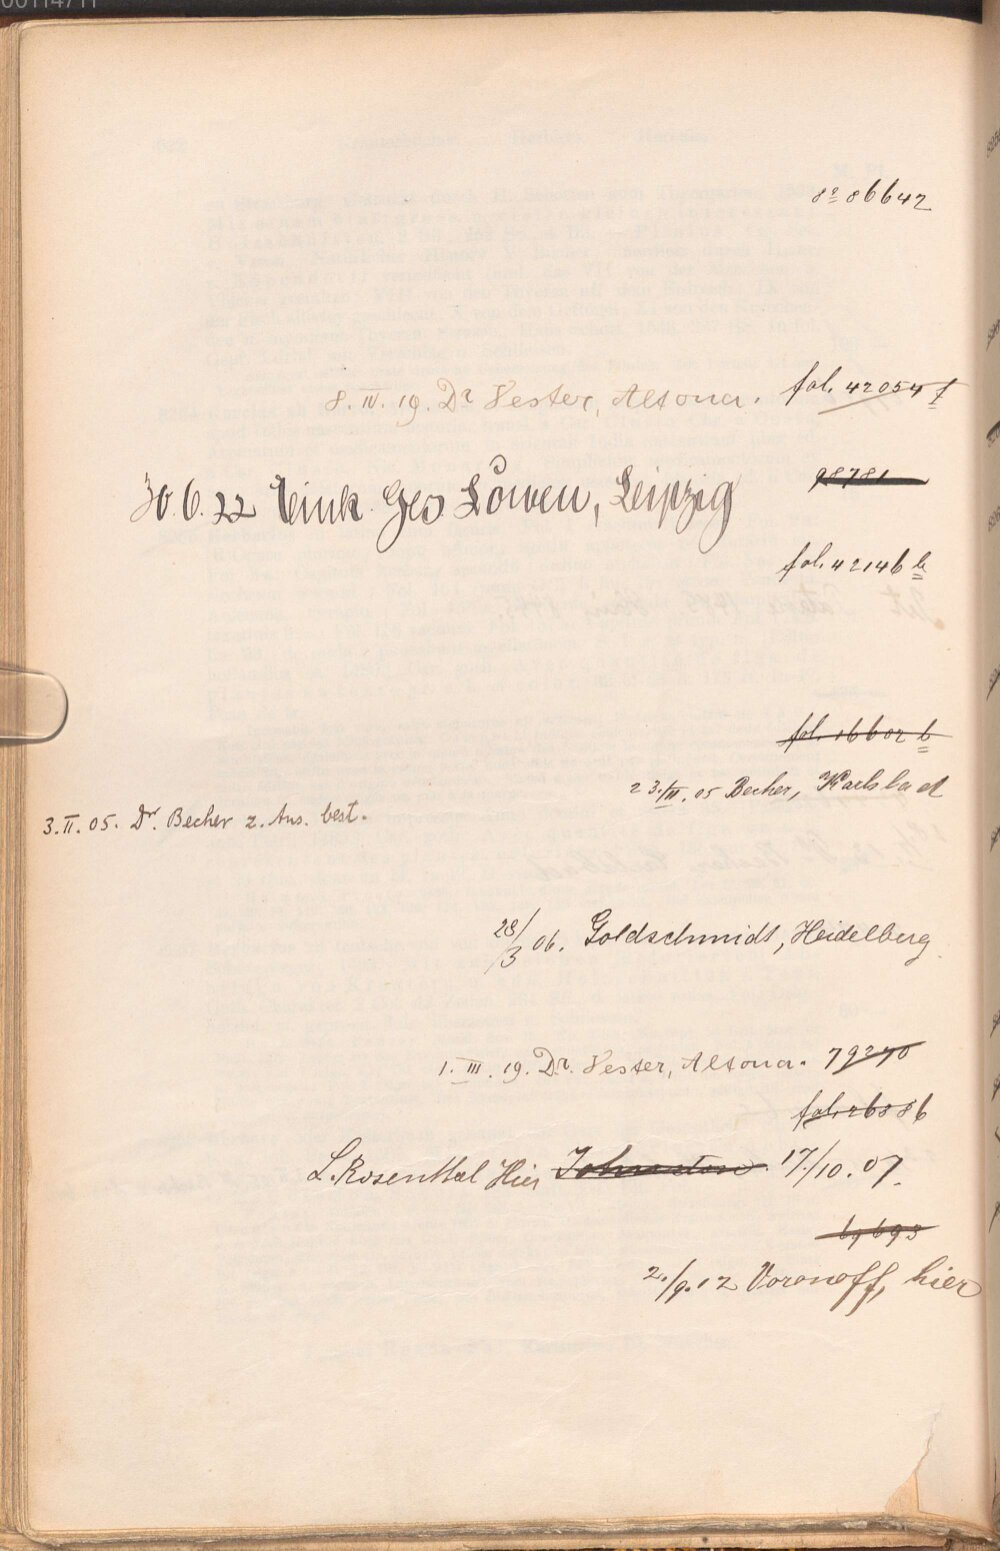 00114711
8º 86642
8. IV. 19. Dr Vester, Altona. fol. 42054 f
98781
30.6.22 Eink. Ges Löwen, Leipzig
fol. 42146 b
fol. 16602 b
23./III. 05 Becher, Karlsbad
3. II. 05. Dr. Becher z. Ans. best.
28/3 06. Goldschmidt, Heidelberg
1. III. 19. Dr. Vester, Altona. 79270
fol. 26886
L. Rosenthal Hier Johnston 17./10. 07.
69693
2./9.12 Voronoff, hier